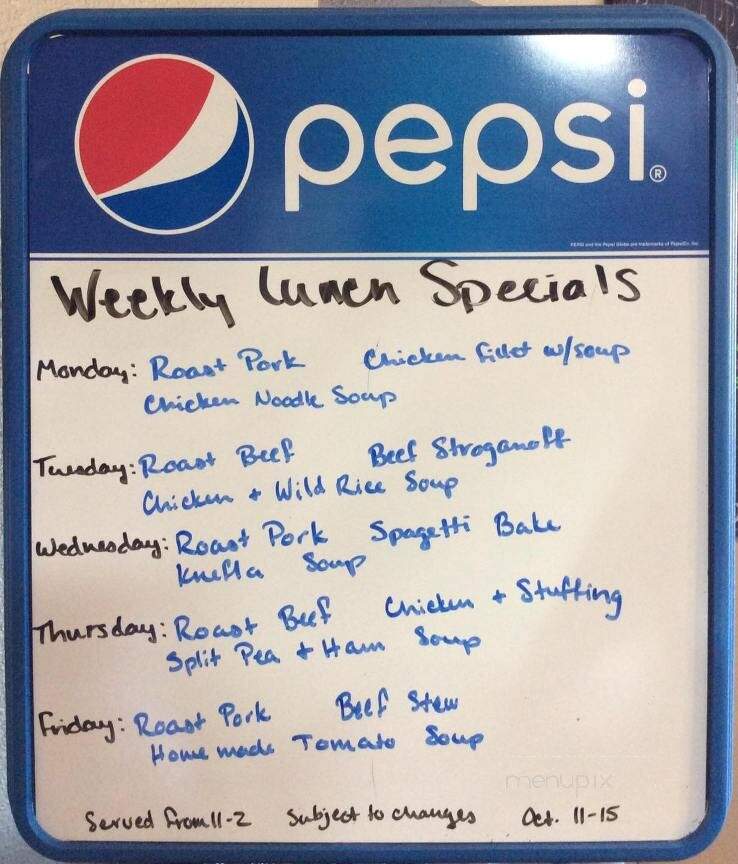 pepsi®
PEPSI and the Pepsi Globe are trademarks of PepsiCo, Inc.
Weekly Lunch Specials
Monday: Roast Pork Chicken fillet w/soup
Chicken Noodle Soup
Tuesday: Roast Beef Beef Stroganoff
Chicken + Wild Rice Soup
Wednesday: Roast Pork Spagetti Bake
Knefla Soup
Thursday: Roast Beef Chicken + Stuffing
Split Pea + Ham Soup
Friday: Roast Pork Beef Stew
Homemade Tomato Soup
menupix
Served from 11-2 Subject to changes Oct. 11-15